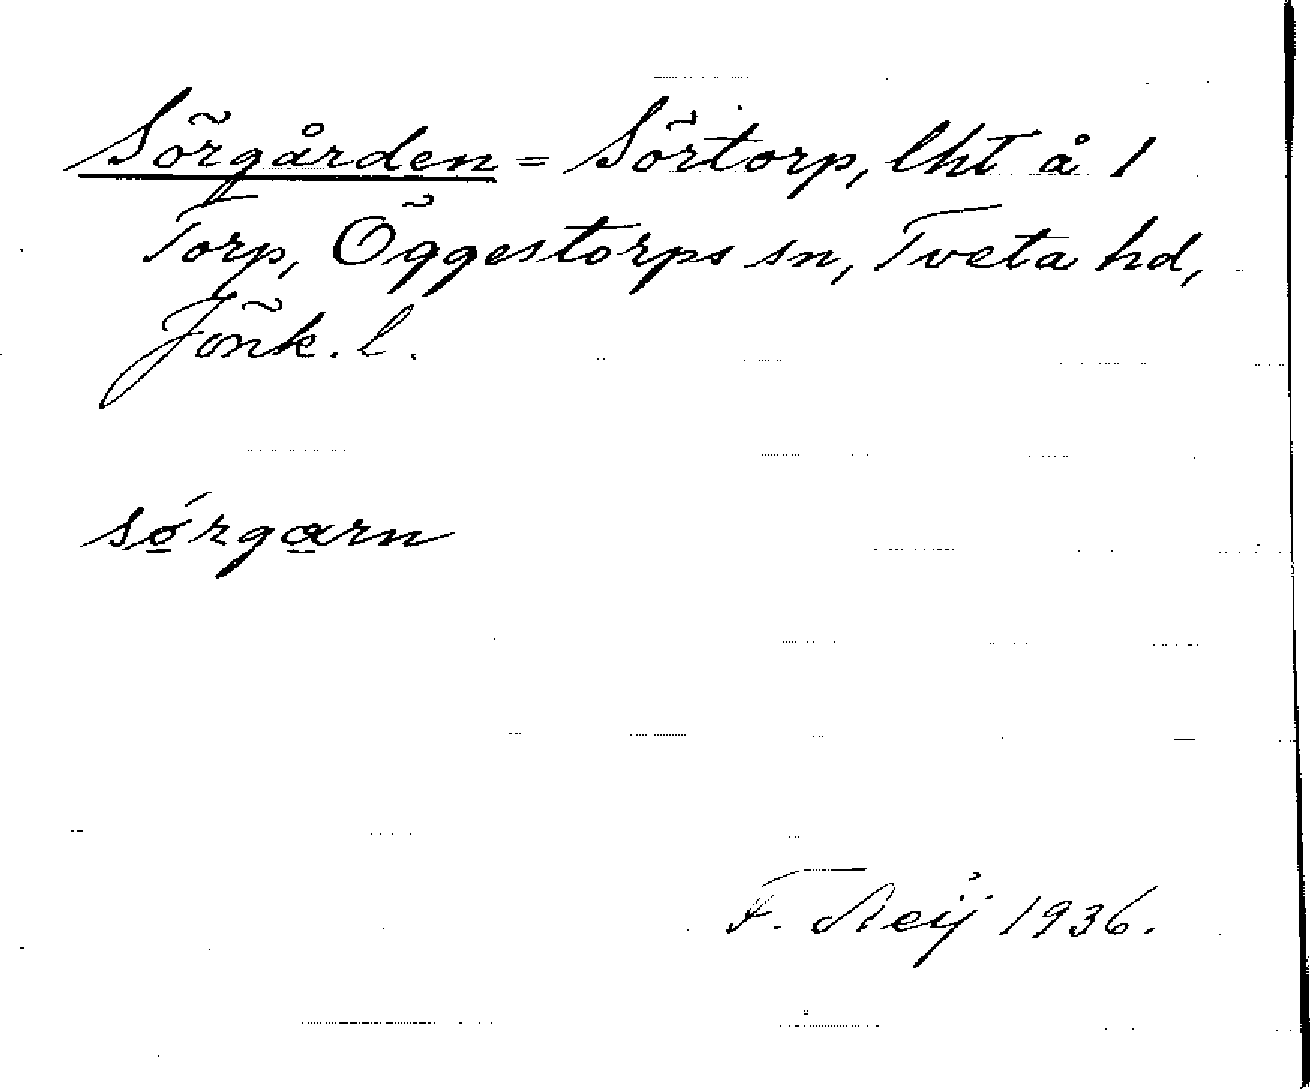 Sörgården = Sörtorp, lht å 1
Torp, Öggestorps sn, Tveta hd,
Jönk. l.
sǿrgarn
F. Neij 1936.